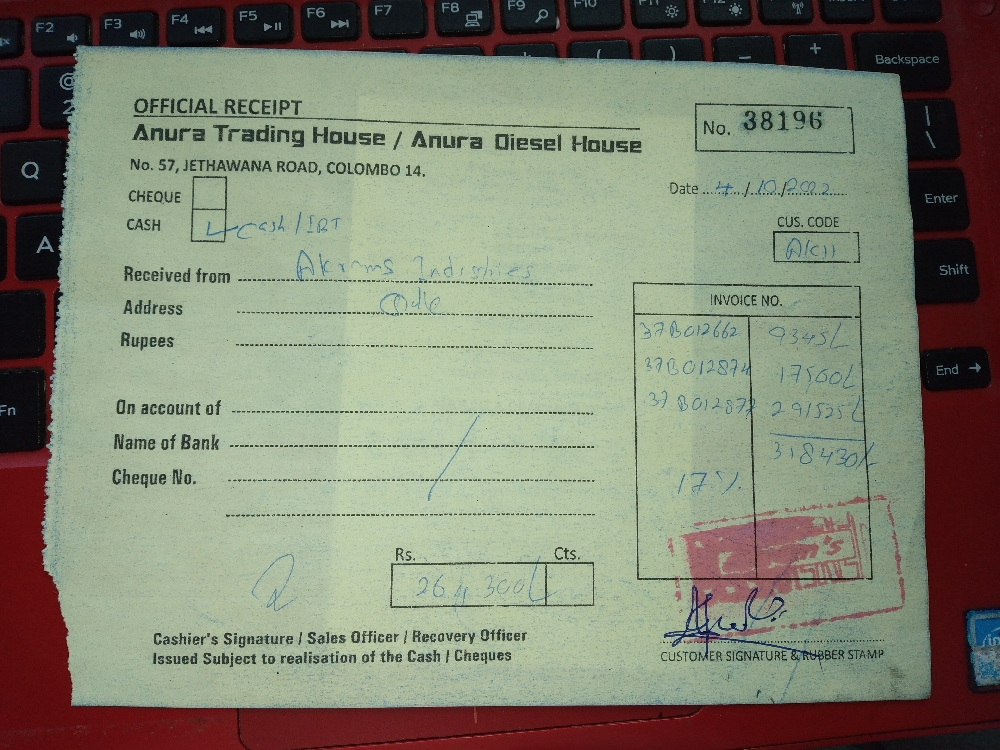 OFFICIAL RECEIPT
Anura Trading House / Anura Diesel House
No. 57, JETHAWANA ROAD, COLOMBO 14.
No. 38196
Date 4/10/2022
CHEQUE
CASH Cash/IBT
CUS. CODE
AK11
Received from Akrams Industries
Address
Rupees
On account of
Name of Bank
Cheque No.
INVOICE NO.
37B012662 9345/
37B012874 17560/
37B012877 291525/
318430/
17%
Rs. Cts.
264300/
Cashier's Signature / Sales Officer / Recovery Officer
Issued Subject to realisation of the Cash / Cheques
CUSTOMER SIGNATURE & RUBBER STAMP
F2
F3
F4
F5
F6
F7
F8
F9
F10
Backspace
Enter
Shift
End
Q
A
Fn
@
2